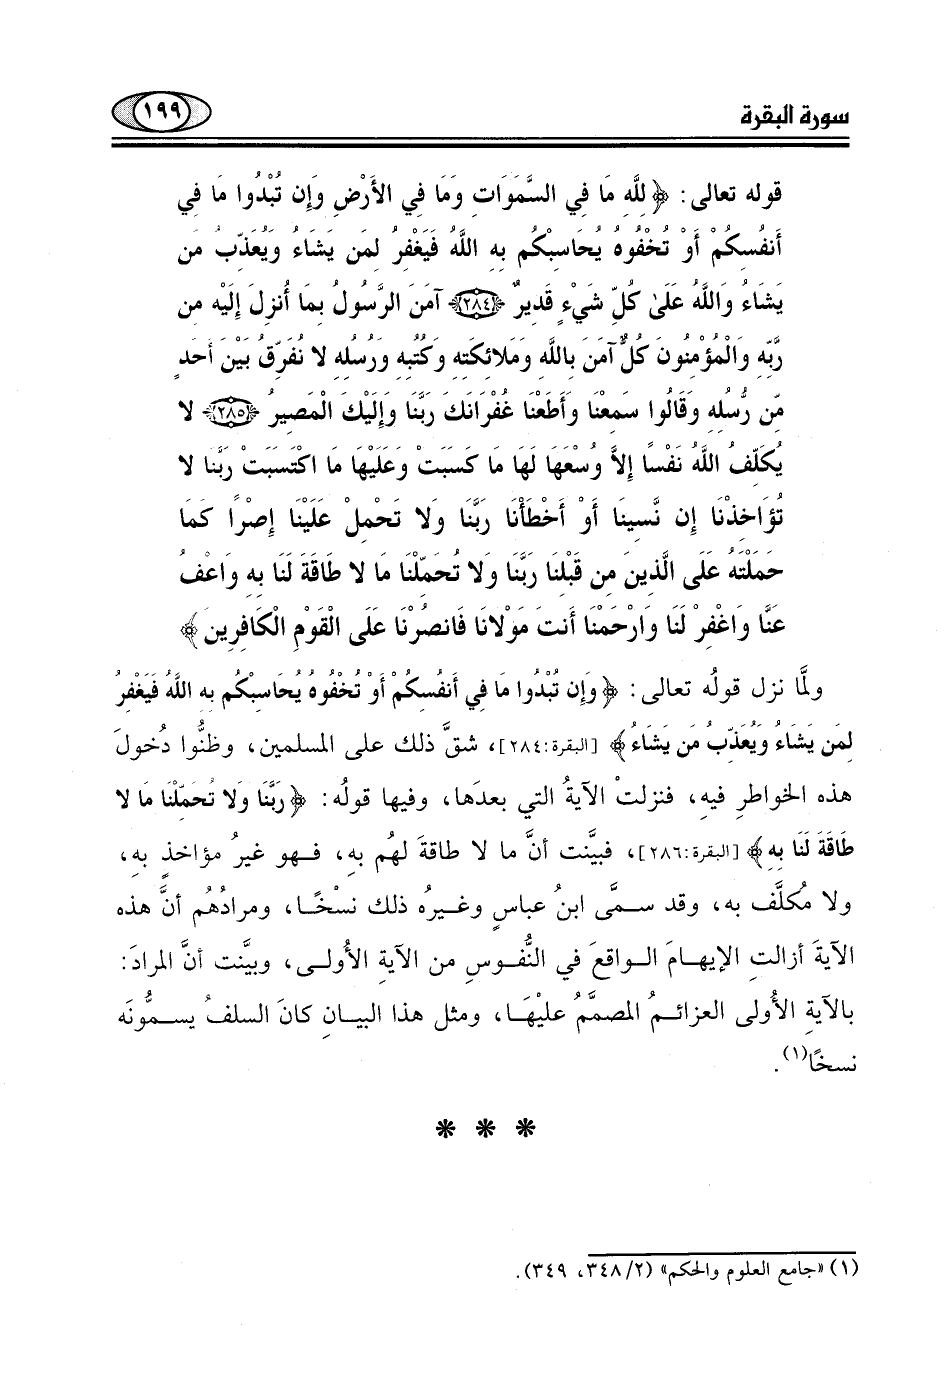 سورة البقرة
١٩٩
قوله تعالى: ﴿لِلَّهِ مَا فِي السَّمَوَاتِ وَمَا فِي الأَرْضِ وَإِن تُبْدُوا مَا فِي
أَنفُسِكُمْ أَوْ تُخْفُوهُ يُحَاسِبْكُم بِهِ اللَّهُ فَيَغْفِرُ لِمَن يَشَاءُ وَيُعَذِّبُ مَن
يَشَاءُ وَاللَّهُ عَلَىٰ كُلِّ شَيْءٍ قَدِيرٌ ﴿٢٨٤﴾ آمَنَ الرَّسُولُ بِمَا أُنزِلَ إِلَيْهِ مِن
رَّبِّهِ وَالْمُؤْمِنُونَ كُلٌّ آمَنَ بِاللَّهِ وَمَلائِكَتِهِ وَكُتُبِهِ وَرُسُلِهِ لا نُفَرِّقُ بَيْنَ أَحَدٍ
مِّن رُّسُلِهِ وَقَالُوا سَمِعْنَا وَأَطَعْنَا غُفْرَانَكَ رَبَّنَا وَإِلَيْكَ الْمَصِيرُ ﴿٢٨٥﴾ لا
يُكَلِّفُ اللَّهُ نَفْسًا إِلاَّ وُسْعَهَا لَهَا مَا كَسَبَتْ وَعَلَيْهَا مَا اكْتَسَبَتْ رَبَّنَا لا
تُؤَاخِذْنَا إِن نَّسِينَا أَوْ أَخْطَأْنَا رَبَّنَا وَلا تَحْمِلْ عَلَيْنَا إِصْرًا كَمَا
حَمَلْتَهُ عَلَى الَّذِينَ مِن قَبْلِنَا رَبَّنَا وَلا تُحَمِّلْنَا مَا لا طَاقَةَ لَنَا بِهِ وَاعْفُ
عَنَّا وَاغْفِرْ لَنَا وَارْحَمْنَا أَنتَ مَوْلانَا فَانصُرْنَا عَلَى الْقَوْمِ الْكَافِرِينَ﴾
ولمَّا نزل قولُه تعالى: ﴿وَإِن تُبْدُوا مَا فِي أَنفُسِكُمْ أَوْ تُخْفُوهُ يُحَاسِبْكُم بِهِ اللَّهُ فَيَغْفِرُ
لِمَن يَشَاءُ وَيُعَذِّبُ مَن يَشَاءُ﴾ [البقرة:٢٨٤]، شقَّ ذلك على المسلمين، وظنُّوا دُخولَ
هذه الخواطرِ فيه، فنزلتْ الآيةُ التي بعدَها، وفيها قولُه: ﴿رَبَّنَا وَلا تُحَمِّلْنَا مَا لا
طَاقَةَ لَنَا بِهِ﴾ [البقرة:٢٨٦]، فبيَّنت أنَّ ما لا طاقةَ لهُم بِهِ، فهو غيرُ مؤاخذٍ بِه،
ولا مُكلَّف به، وقد سمَّى ابنُ عباسٍ وغيرُه ذلك نسْخًا، ومرادُهُم أنَّ هذه
الآيةَ أزالتِ الإيهامَ الواقعَ في النُّفوسِ من الآيةِ الأُولى، وبيَّنت أنَّ المرادَ:
بالآيةِ الأُولى العزائمُ المصمَّمُ عليْهَا، ومثل هذا البيانِ كانَ السلفُ يسمُّونَه
نسخًا(١).
* * *
(١) «جامع العلوم والحكم» (٣٤٨/٢، ٣٤٩).